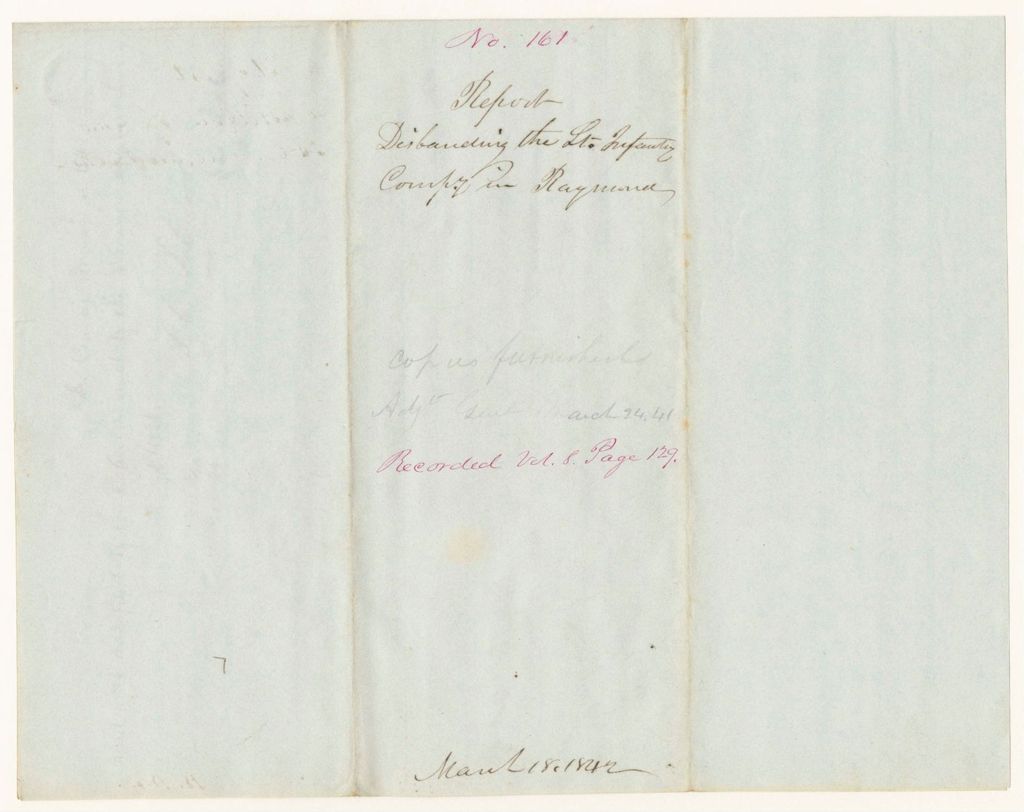 No. 161
Report
Disbanding the Lt. Infantry
Compy in Raymond
Copies furnished
Adjt Genl March 24, 41
Recorded Vol. 8. Page 129.
March 18, 1842